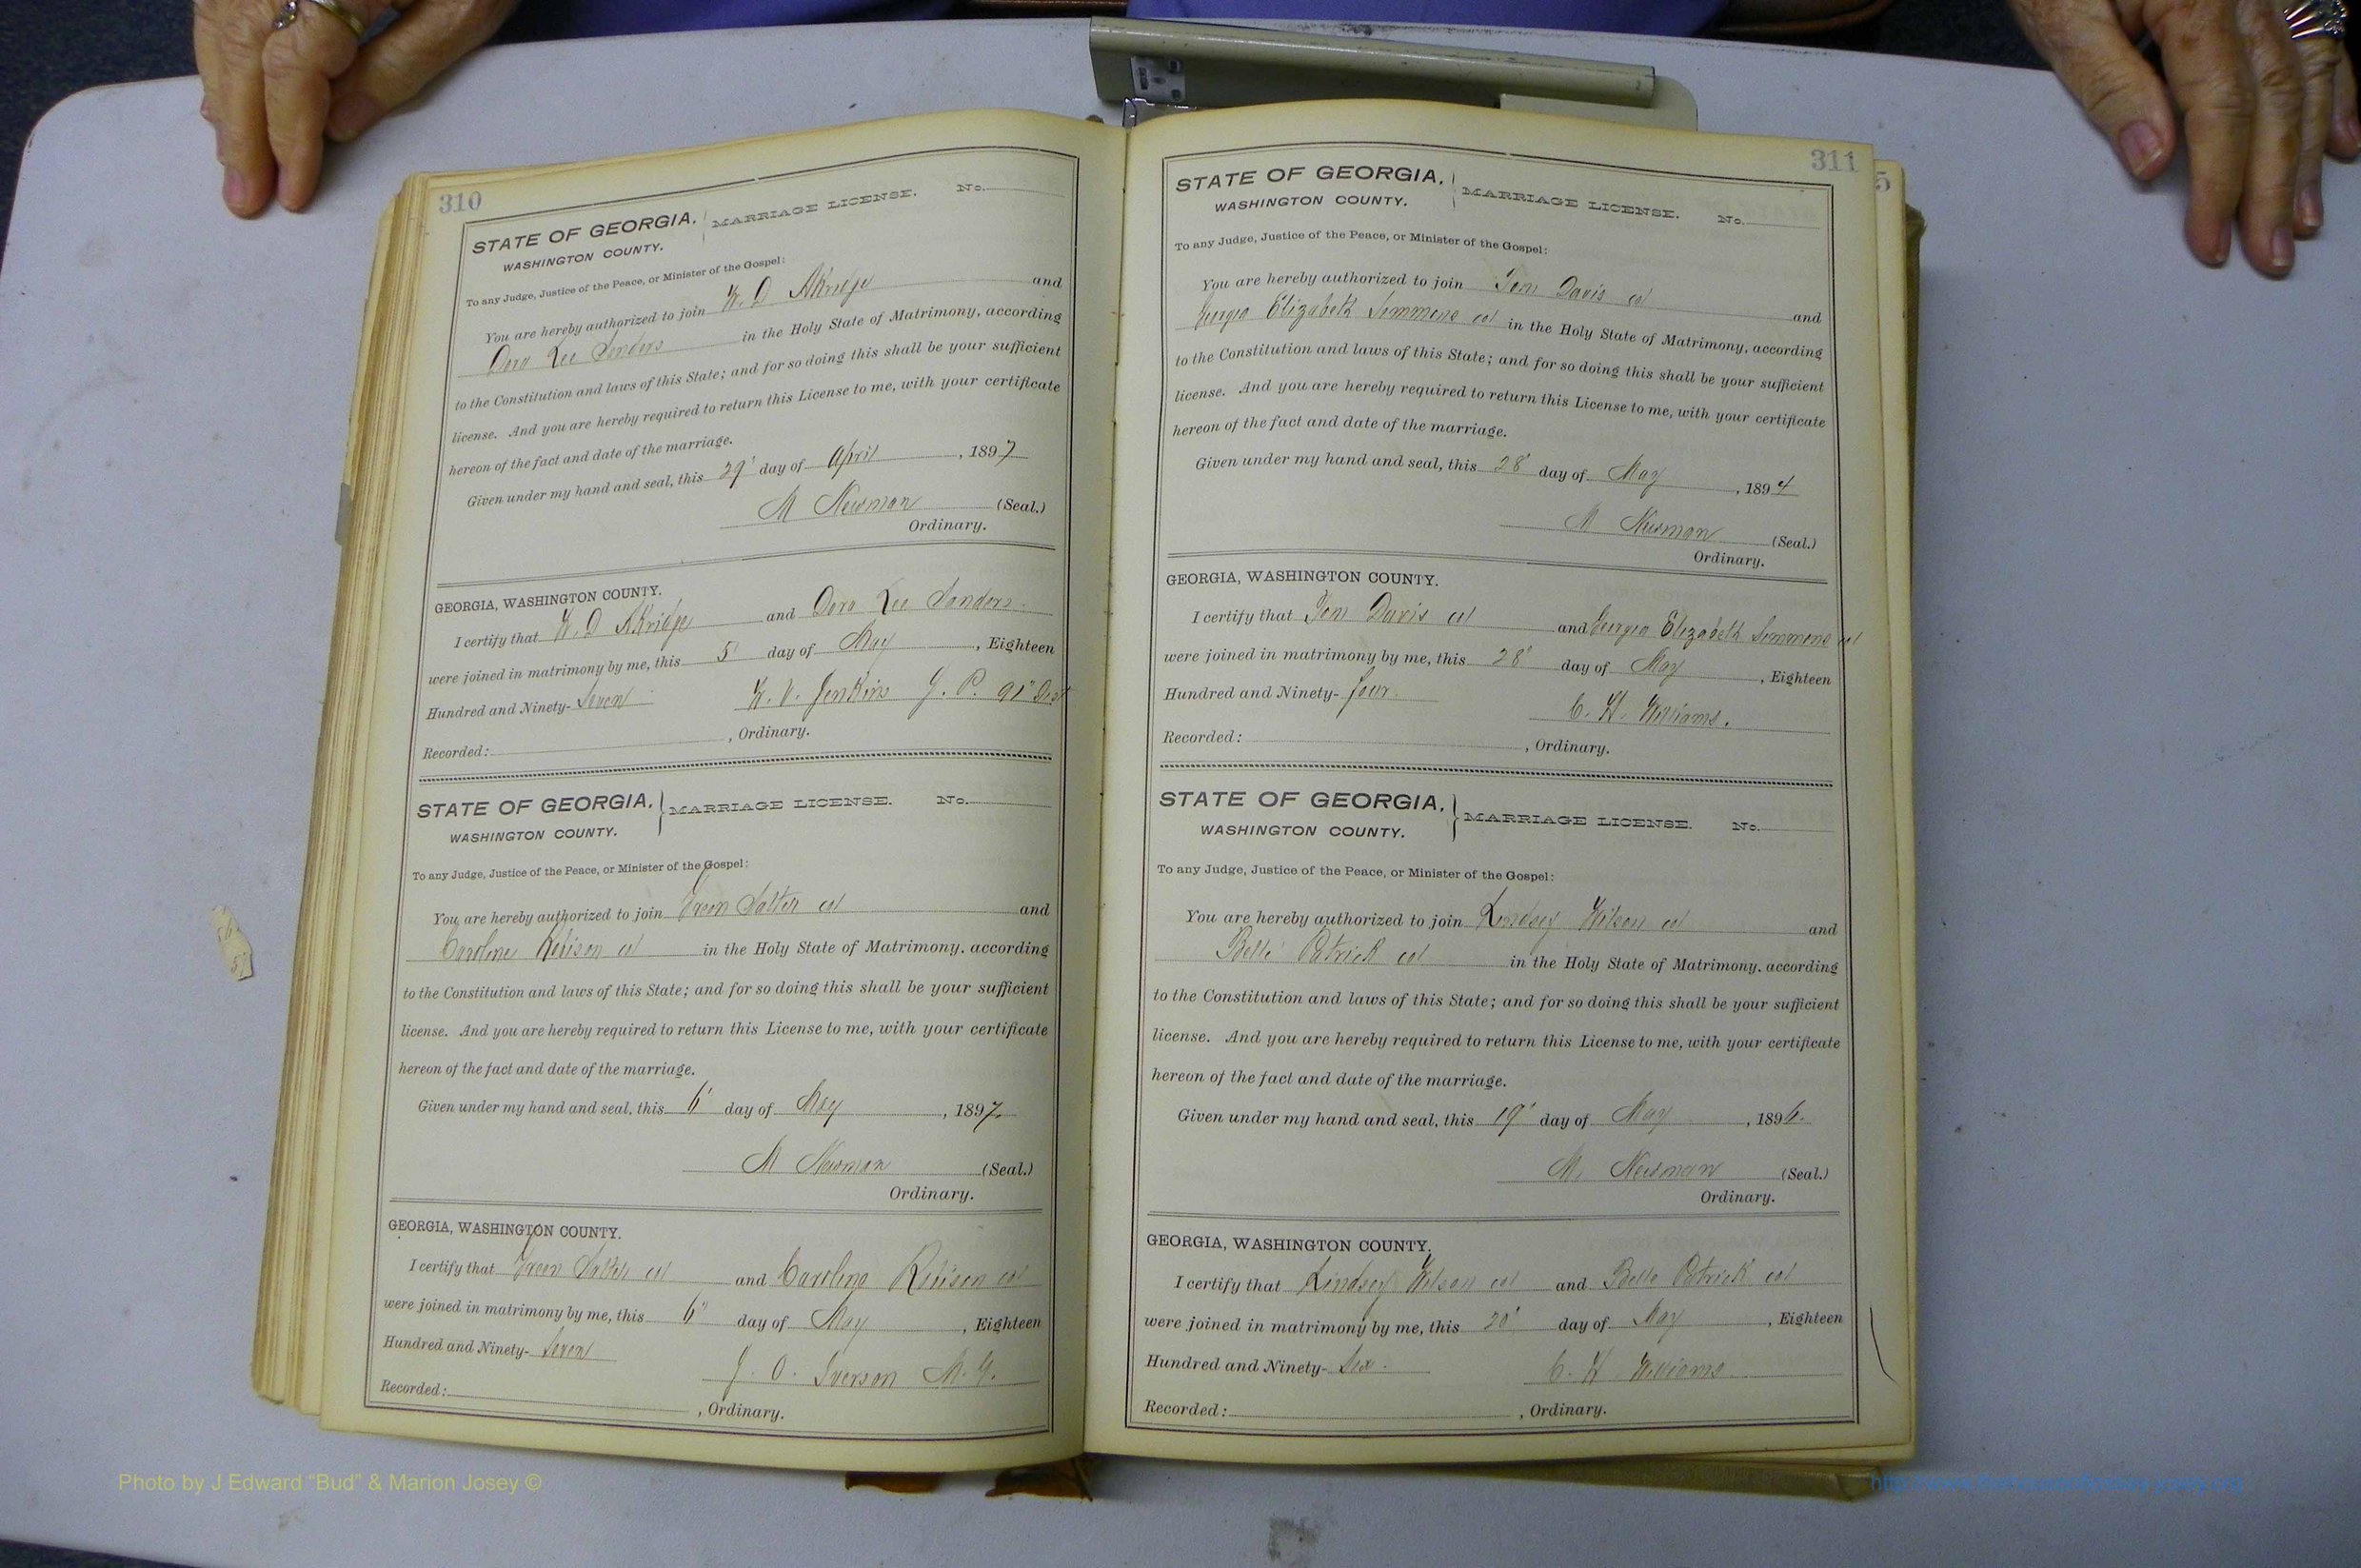 310
STATE OF GEORGIA, MARRIAGE LICENSE. No.
WASHINGTON COUNTY.
To any Judge, Justice of the Peace, or Minister of the Gospel:
You are hereby authorized to join W. D Akridge and
Dora Lee Sanders in the Holy State of Matrimony, according
to the Constitution and laws of this State; and for so doing this shall be your sufficient
license. And you are hereby required to return this License to me, with your certificate
hereon of the fact and date of the marriage.
Given under my hand and seal, this 29' day of April, 1897
M Newman (Seal.)
Ordinary.
GEORGIA, WASHINGTON COUNTY.
I certify that W. D Akridge and Dora Lee Sanders
were joined in matrimony by me, this 5' day of May, Eighteen
Hundred and Ninety- Seven W. V. Jenkins J. P. 91" Dist
Recorded: , Ordinary.
STATE OF GEORGIA, MARRIAGE LICENSE. No.
WASHINGTON COUNTY.
To any Judge, Justice of the Peace, or Minister of the Gospel:
You are hereby authorized to join Green Salter col and
Caroline col in the Holy State of Matrimony, according
to the Constitution and laws of this State; and for so doing this shall be your sufficient
license. And you are hereby required to return this License to me, with your certificate
hereon of the fact and date of the marriage.
Given under my hand and seal, this 6' day of May, 1897.
M Newman (Seal.)
Ordinary.
GEORGIA, WASHINGTON COUNTY.
I certify that Green Salter col and Caroline col
were joined in matrimony by me, this 6" day of May, Eighteen
Hundred and Ninety- Seven
J. O. Iverson M. G.
Recorded: , Ordinary.
311
5
STATE OF GEORGIA, MARRIAGE LICENSE. No.
WASHINGTON COUNTY.
To any Judge, Justice of the Peace, or Minister of the Gospel:
You are hereby authorized to join Tom Davis col and
Georgia Elizabeth Simmons col in the Holy State of Matrimony, according
to the Constitution and laws of this State; and for so doing this shall be your sufficient
license. And you are hereby required to return this License to me, with your certificate
hereon of the fact and date of the marriage.
Given under my hand and seal, this 28' day of May, 1894
M Newman (Seal.)
Ordinary.
GEORGIA, WASHINGTON COUNTY.
I certify that Tom Davis col and Georgia Elizabeth Simmons col
were joined in matrimony by me, this 28' day of May, Eighteen
Hundred and Ninety- four.
C. H. Williams.
Recorded: , Ordinary.
STATE OF GEORGIA, MARRIAGE LICENSE. No.
WASHINGTON COUNTY.
To any Judge, Justice of the Peace, or Minister of the Gospel:
You are hereby authorized to join Lindsey Wilson col and
Belle Patrick col in the Holy State of Matrimony, according
to the Constitution and laws of this State; and for so doing this shall be your sufficient
license. And you are hereby required to return this License to me, with your certificate
hereon of the fact and date of the marriage.
Given under my hand and seal, this 19' day of May, 1896.
M. Newman (Seal.)
Ordinary.
GEORGIA, WASHINGTON COUNTY.
I certify that Lindsey Wilson col and Belle Patrick col
were joined in matrimony by me, this 20' day of May, Eighteen
Hundred and Ninety- Six.
C. H Williams
Recorded: , Ordinary.
Photo by J Edward "Bud" & Marion Josey ©